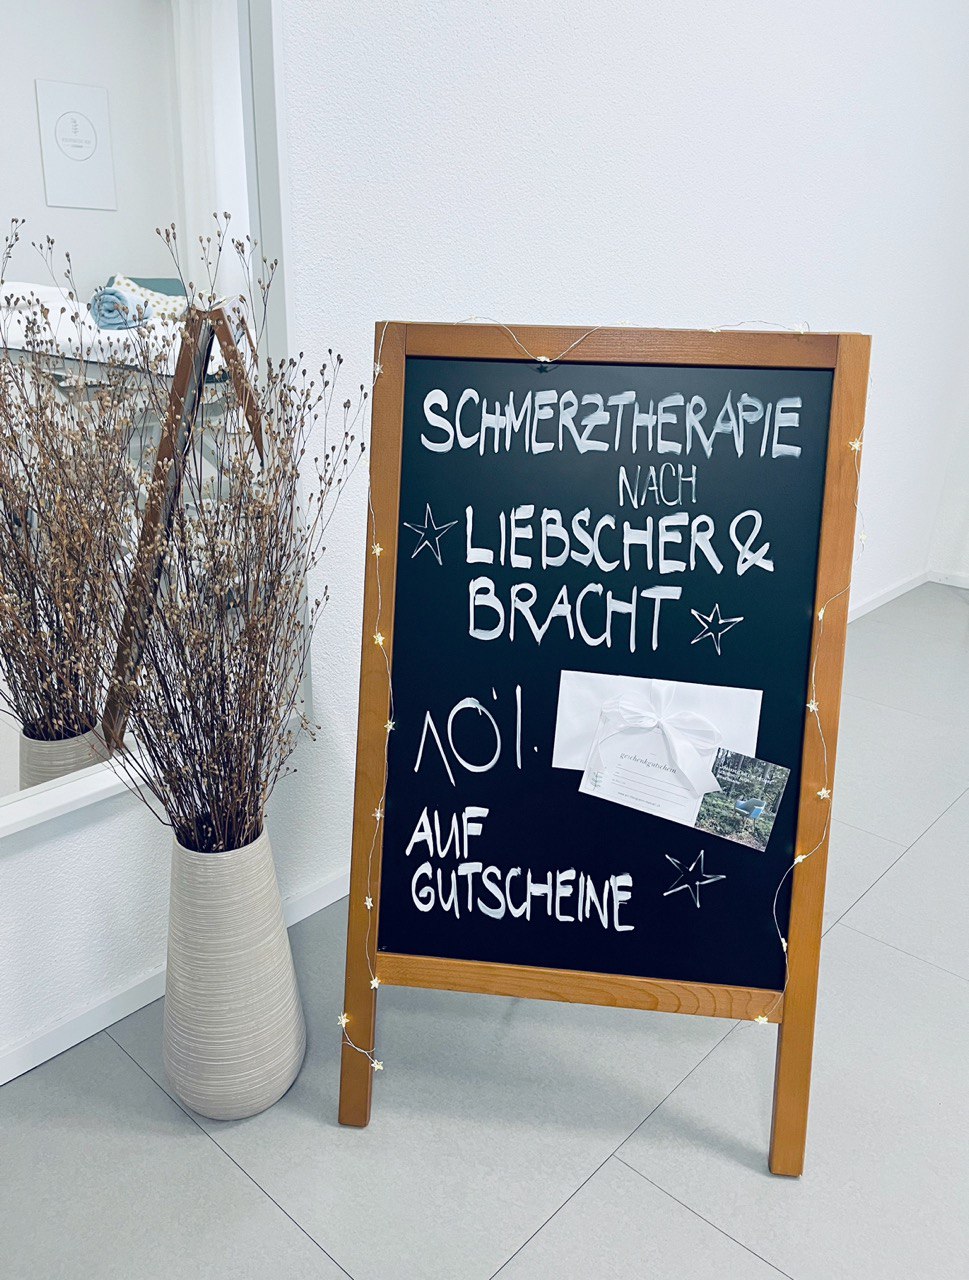 SCHMERZTHERAPIE
NACH
LIEBSCHER &
BRACHT
10%
AUF
GUTSCHEINE
geschenkgutschein